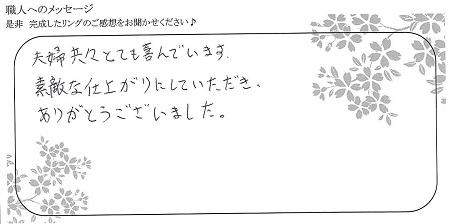 職人へのメッセージ
是非 完成したリングのご感想をお聞かせください♪
夫婦共々とても喜んでいます。
素敵な仕上がりにしていただき、
ありがとうございました。